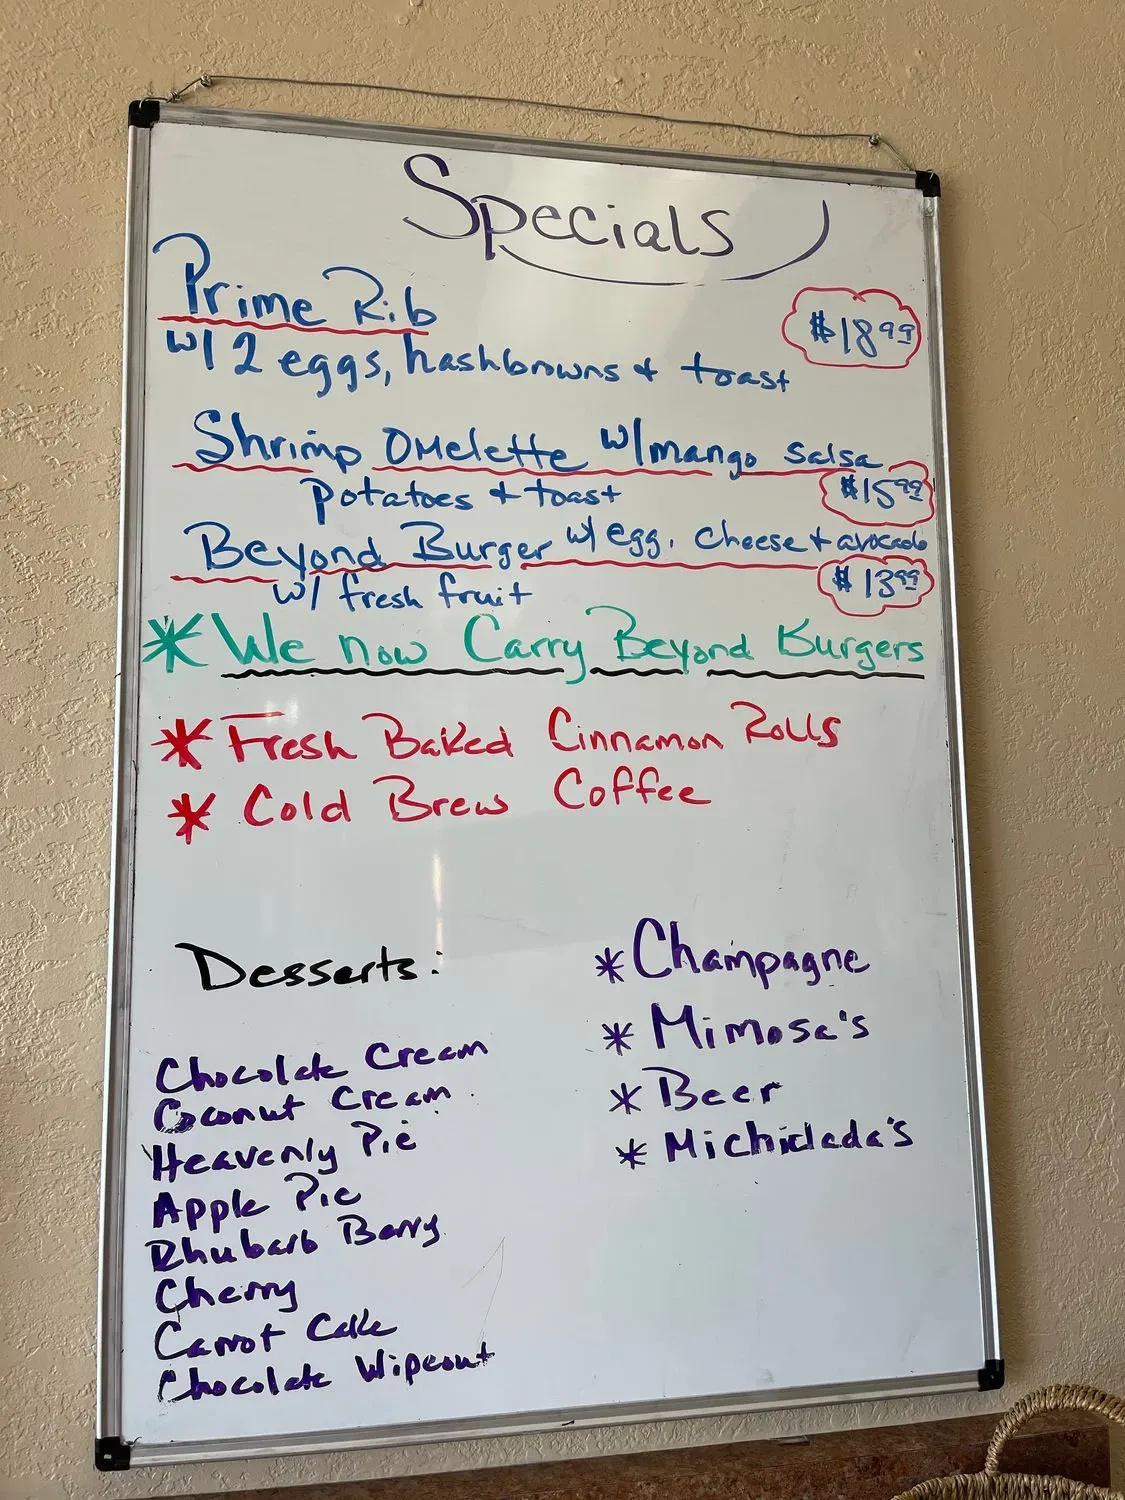 Specials
Prime Rib
$18.99
w/ 2 eggs, hashbrowns & toast
Shrimp Omelette w/ mango salsa
potatoes & toast
$15.99
Beyond Burger w/ egg, cheese + avocado
w/ fresh fruit
$13.99
* We now Carry Beyond Burgers
* Fresh Baked Cinnamon Rolls
* Cold Brew Coffee
Desserts:
Chocolate Cream
Coconut Cream
Heavenly Pie
Apple Pie
Rhubarb Berry
Cherry
Carrot Cake
Chocolate Wipeout
* Champagne
* Mimosa's
* Beer
* Michilada's